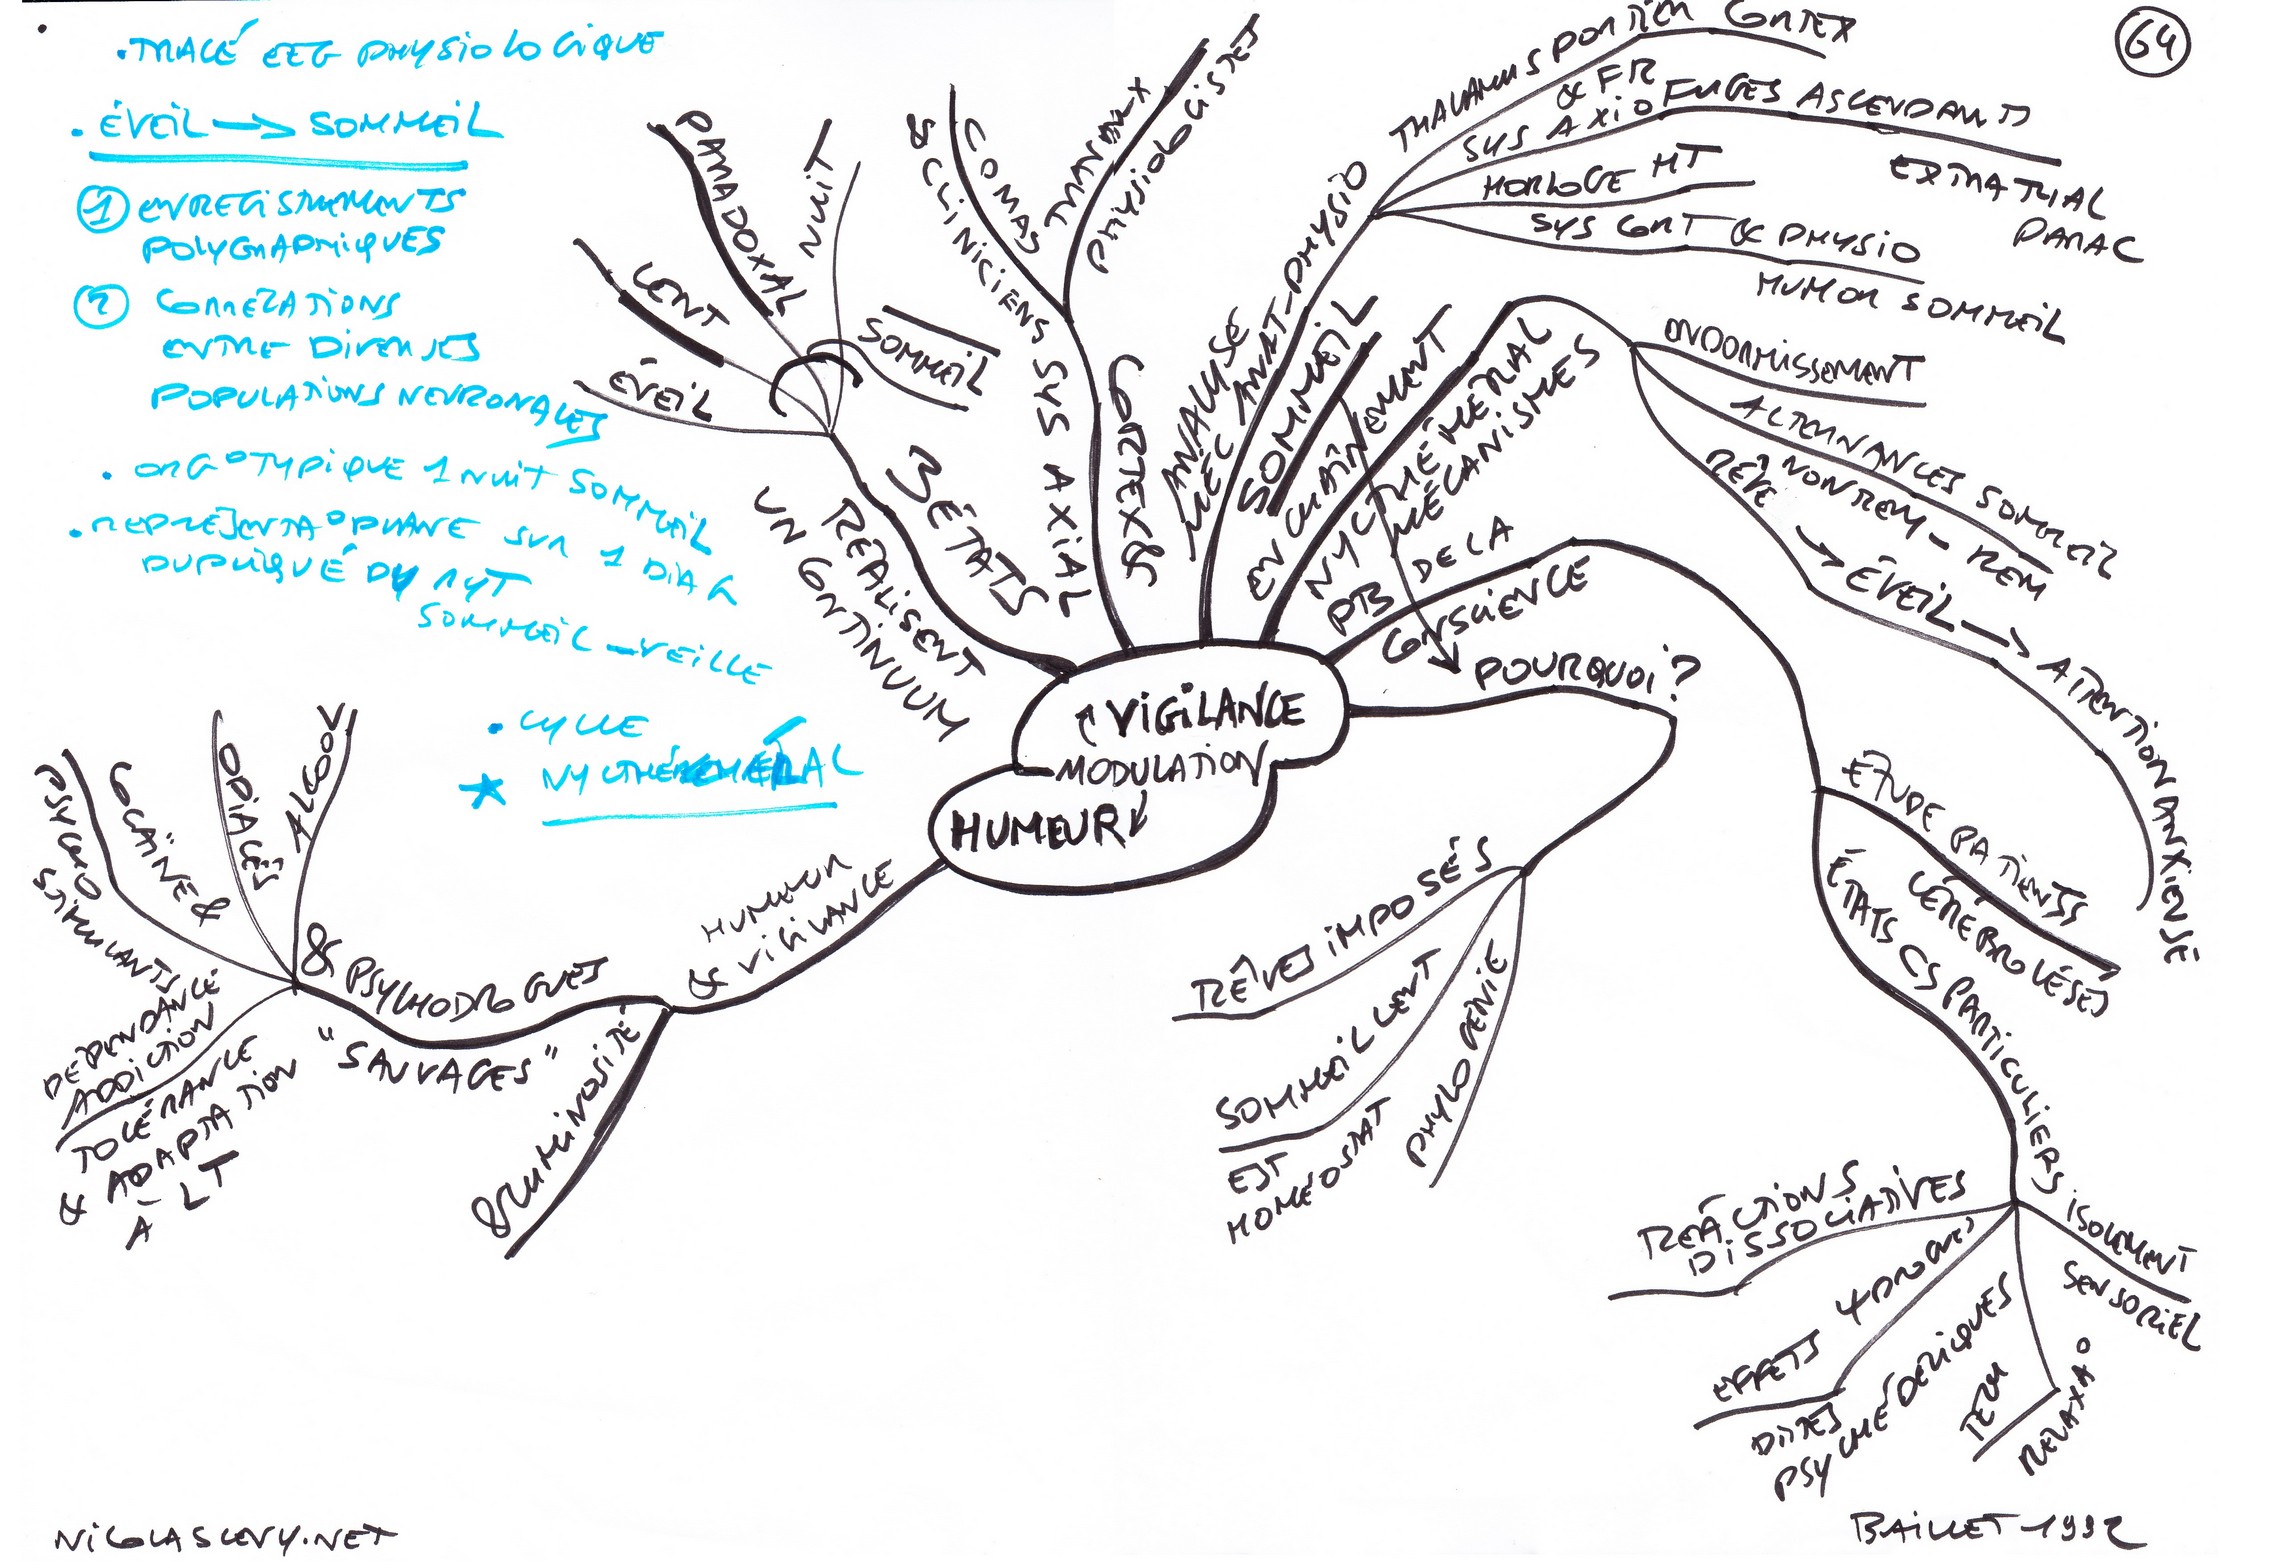 64
.TRACÉ EEG PHYSIOLOGIQUE
. ÉVEIL → SOMMEIL
① ENREGISTREMENTS
POLYGRAPHIQUES
② CORRELATIONS
ENTRE DIVERSES
POPULATIONS NEURONALES
. ORG° TYPIQUE 1 NUIT SOMMEIL
. REPRÉSENTA° PHANE SUR 1 DIAG
DUPLIQUÉ DU RYT
SOMMEIL – VEILLE
. CYCLE
* NYCTHÉMÉRAL
↑ VIGILANCE
MODULATION
HUMEUR ↓
3 ÉTATS
RÉALISENT
UN CONTINUUM
ÉVEIL
LENT
PARADOXAL
NUIT
SOMMEIL
CORTEX &
SYS AXIAL
COMAS
& CLINICIENS
TRAVAUX
PHYSIOLOGISTES
ANALYSE
MÉC ANAT-PHYSIO
SOMMEIL
THALAMUS PORTIER CORTEX
& FR
SYS AXIO FUGES ASCENDANTS
EXTRATHAL
PARAC
HORLOGE HT
SYS CONT & PHYSIO
HUMOR SOMMEIL
ENCHAÎNEMENT
NYCTHÉMÉRAL
MÉCANISMES
ENDORMISSEMENT
ALTERNANCES SOMMEIL
NON REM – REM
RÊVE → ÉVEIL → ATTENTION ANXIEUSE
PB DE LA
CONSCIENCE
ETUDE PATIENTS
CÉREBROLÉSÉS
ÉTATS CS PARTICULIERS
ISOLEMENT
SENSORIEL
TECH
RELAXA°
EFFETS 4 DROGUES
DITES
PSYCHÉDÉLIQUES
RÉACTIONS
DISSOCIATIVES
POURQUOI?
RÊVES IMPOSÉS
SOMMEIL LENT
EST
HOMÉOSTAT
PHYLOGÉNIE
HUMEUR
& VIGILANCE
& LUMINOSITÉ
& PSYCHODROGUES
"SAUVAGES"
ALCOOL
OPIACÉS
COCAÏNE &
PSYCHO
STIMULANTS
DÉPENDANCE
ADDICTION
TOLÉRANCE
& ADAPTATION
À LT
NICOLASLEVY.NET
BAILLET – 1992